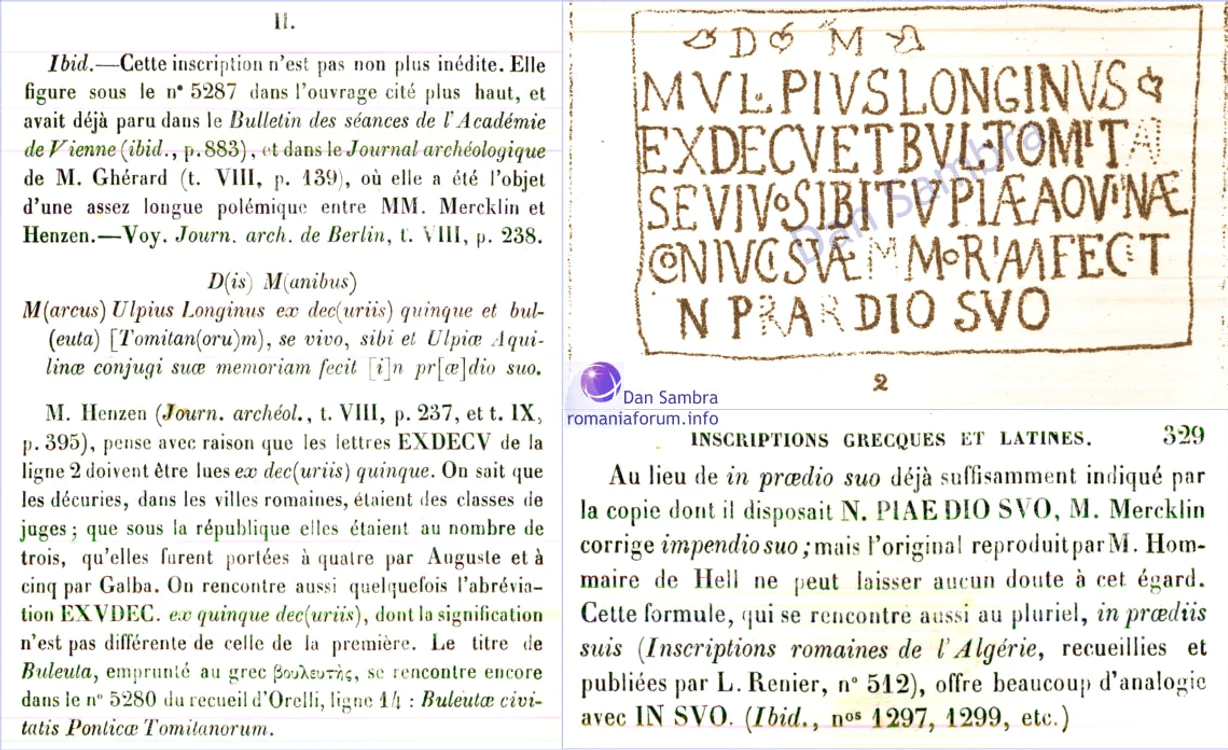 II.
Ibid.—Cette inscription n'est pas non plus inédite. Elle
figure sous le n° 5287 dans l'ouvrage cité plus haut, et
avait déjà paru dans le Bulletin des séances de l'Académie
de Vienne (ibid., p. 883), et dans le Journal archéologique
de M. Ghérard (t. VIII, p. 139), où elle a été l'objet
d'une assez longue polémique entre MM. Mercklin et
Henzen.—Voy. Journ. arch. de Berlin, t. VIII, p. 238.
D(is) M(anibus)
M(arcus) Ulpius Longinus ex dec(uriis) quinque et bul-
(euta) [Tomitan(oru)m), se vivo, sibi et Ulpiæ Aqui-
linæ conjugi suæ memoriam fecit [i]n pr[æ]dio suo.
M. Henzen (Journ. archéol., t. VIII, p. 237, et t. IX,
p. 395), pense avec raison que les lettres EXDECV de la
ligne 2 doivent être lues ex dec(uriis) quinque. On sait que
les décuries, dans les villes romaines, étaient des classes de
juges; que sous la république elles étaient au nombre de
trois, qu'elles furent portées à quatre par Auguste et à
cinq par Galba. On rencontre aussi quelquefois l'abrévia-
tion EXVDEC. ex quinque dec(uriis), dont la signification
n'est pas différente de celle de la première. Le titre de
Buleuta, emprunté au grec βουλευτής, se rencontre encore
dans le n° 5280 du recueil d'Orelli, ligne 14 : Buleutæ civi-
tatis Ponticæ Tomitanorum.
D M
MVLPIVSLONGINVS
EXDECVETBVL·TOMIT
SEVIVoSIBIETVPIÆAOVINÆ
CoNIVGISVÆ MMoRIAMFECIT
N PRARDIO SVO
2
Dan Sambra
Dan Sambra
romaniaforum.info
INSCRIPTIONS GRECQUES ET LATINES. 329
Au lieu de in prædio suo déjà suffisamment indiqué par
la copie dont il disposait N. PIAE DIO SVO, M. Mercklin
corrige impendio suo; mais l'original reproduit par M. Hom-
maire de Hell ne peut laisser aucun doute à cet égard.
Cette formule, qui se rencontre aussi au pluriel, in prædiis
suis (Inscriptions romaines de l'Algérie, recueillies et
publiées par L. Renier, n° 512), offre beaucoup d'analogie
avec IN SVO. (Ibid., nos 1297, 1299, etc.)